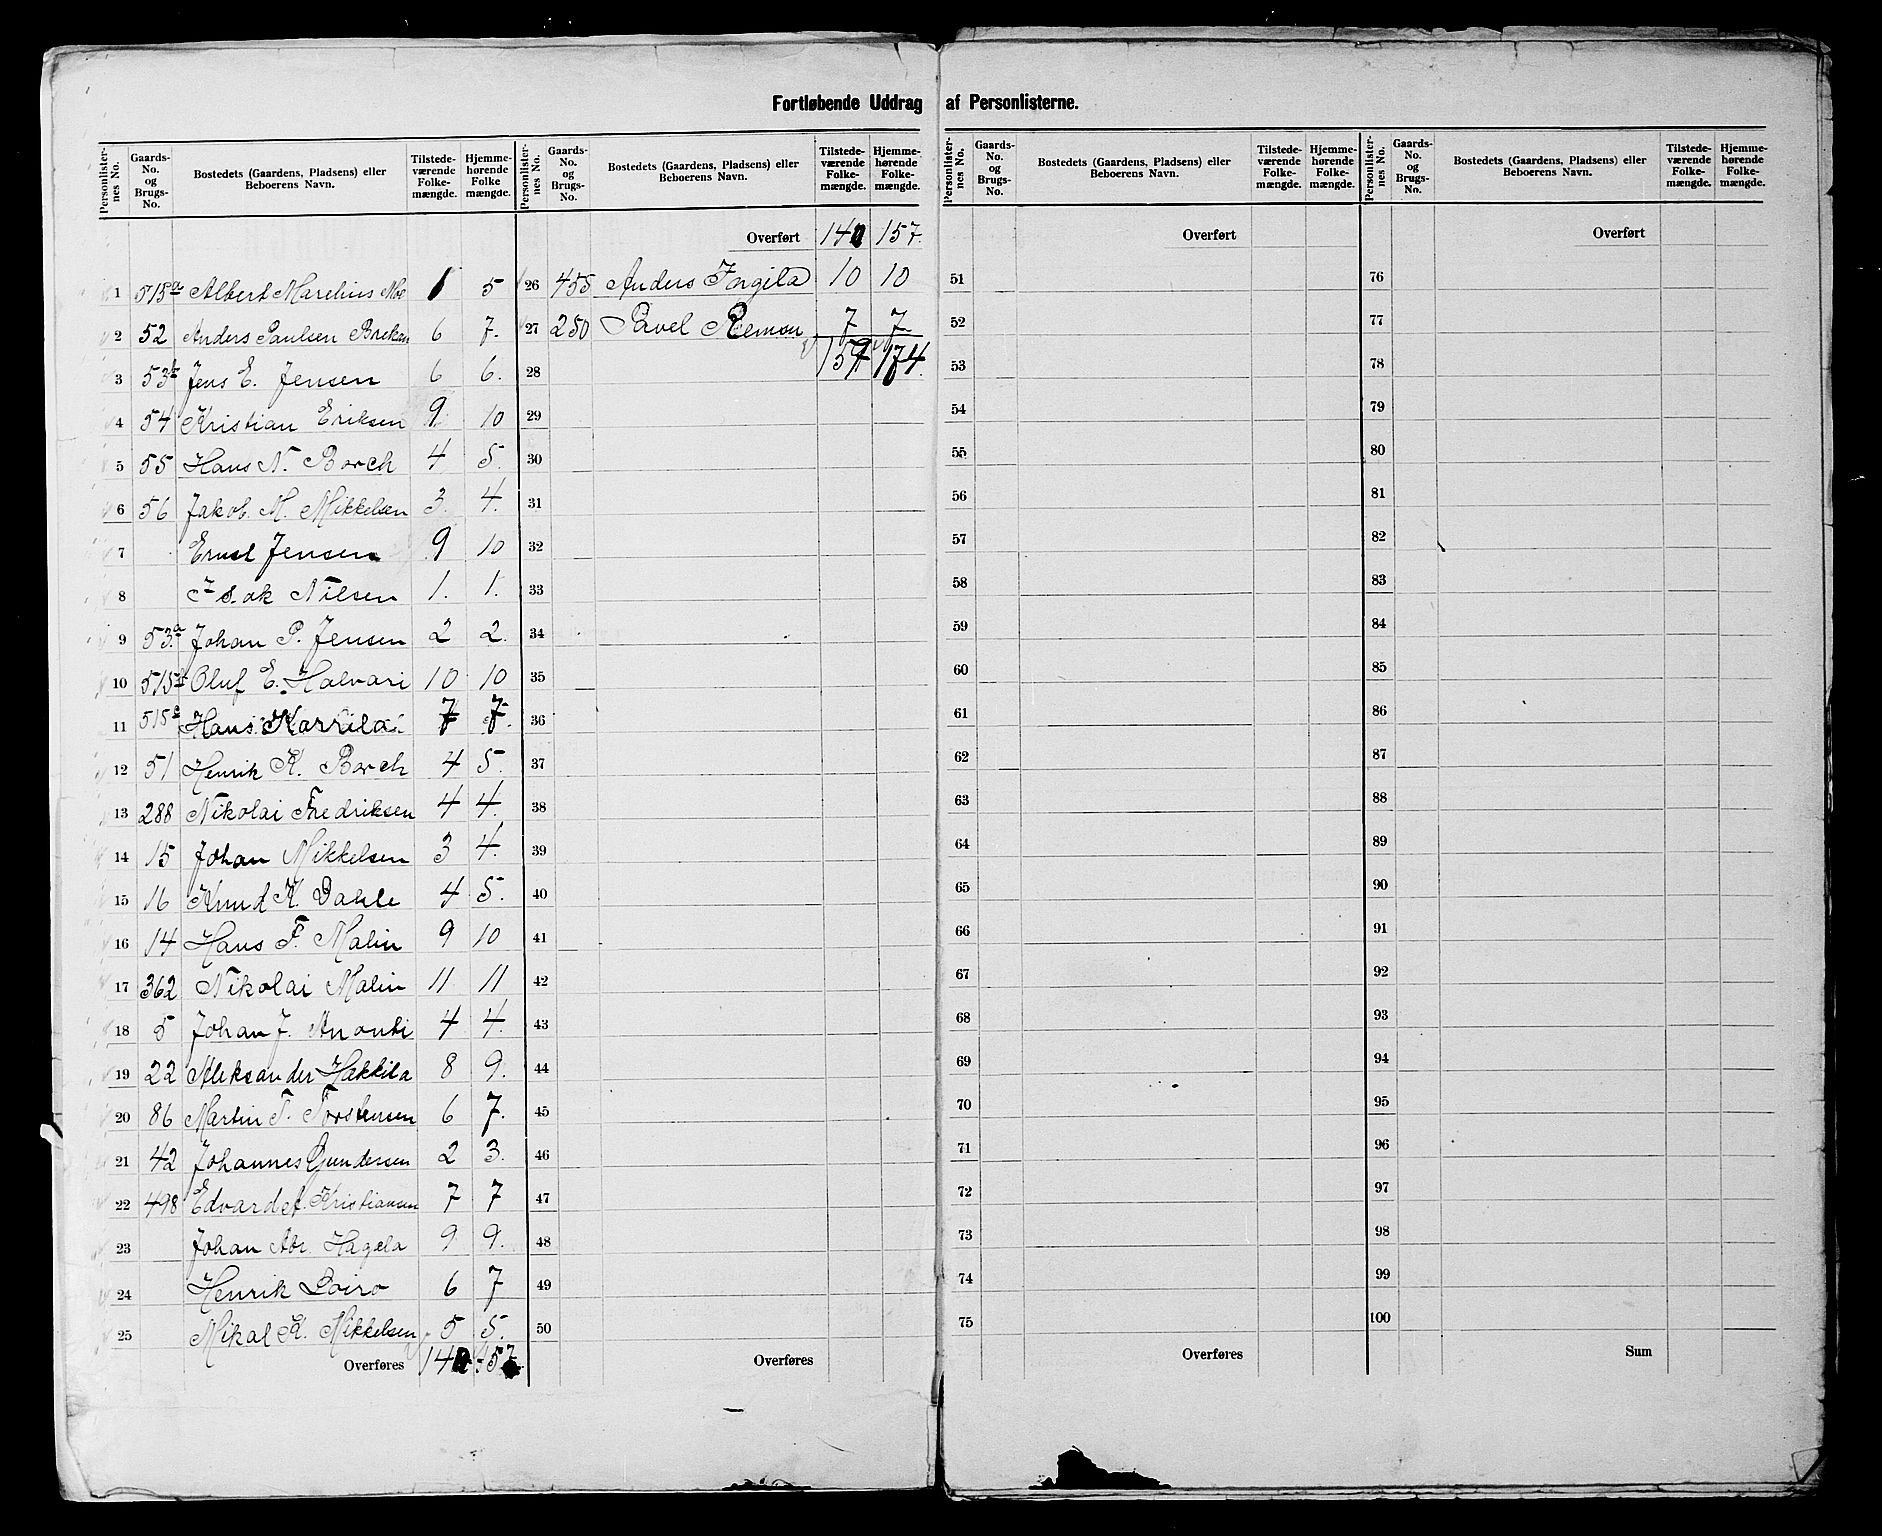 Fortløbende Uddrag af Personlisterne.
Personlister-nes No. Gaards-No. og Brugs-No. Bostedets (Gaardens, Pladsens) eller Beboerens Navn. Tilstede-værende Folke-mængde. Hjemme-hørende Folke mængde.
1 515a Albert Marelius Moe 1 5
2 52 Anders Paulsen 6 7.
3 53b Jens E. Jensen 6 6.
4 54 Kristian Eriksen 9. 10
5 55 Hans N. Borch 4 5.
6 56 Jakob. M. Mikkelsen 3. 4.
7 Ernst Jensen 9 10
8 Isak Nilsen 1. 1.
9 53.a Johan P. Jensen 2 2.
10 515b Oluf E. Halvari 10 10
11 515c Hans Karrila 7 7.
12 51 Henrik K. Borch 4 5.
13 288 Nikolai Fredriksen 4 4.
14 15 Johan Mikkelsen 3 4.
15 16 Knud K. Dahle 4 5.
16 14 Hans F. Malin 9 10
17 362 Nikolai Malin 11 11
18 5 Johan J. Anonti 4 4.
19 22 Aleksander Hakkila 8 9.
20 86 Martin T. Torstensen 6 7.
21 42 Johannes Gundersen 2 3.
22 498 Edvard Kristiansen 7 7
23 Johan Abr. Hagela 9 9.
24 Henrik Doiro 6 7
25 Mikal K. Mikkelsen 5 5.
Overføres 140 157
Personlister-nes No. Gaards-No. og Brugs-No. Bostedets (Gaardens, Pladsens) eller Beboerens Navn. Tilstede-værende Folke-mængde. Hjemme-hørende Folke-mængde.
Overført 140 157.
26 455 Anders 10 10
27 250 Pavel 7 7
28 157 174.
29
30
31
32
33
34
35
36
37
38
39
40
41
42
43
44
45
46
47
48
49
50
Overføres
Personlister-nes No. Gaards-No. og Brugs-No. Bostedets (Gaardens, Pladsens) eller Beboerens Navn. Tilstede-værende Folke-mængde. Hjemme-hørende Folke-mængde.
Overført
51
52
53
54
55
56
57
58
59
60
61
62
63
64
65
66
67
68
69
70
71
72
73
74
75
Overføres
Personlister-nes No. Gaards-No. og Brugs-No. Bostedets (Gaardens, Pladsens) eller Beboerens Navn. Tilstede-værende Folke-mængde. Hjemme-hørende Folke-mængde.
Overført
76
77
78
79
80
81
82
83
84
85
86
87
88
89
90
91
92
93
94
95
96
97
98
99
100
Sum